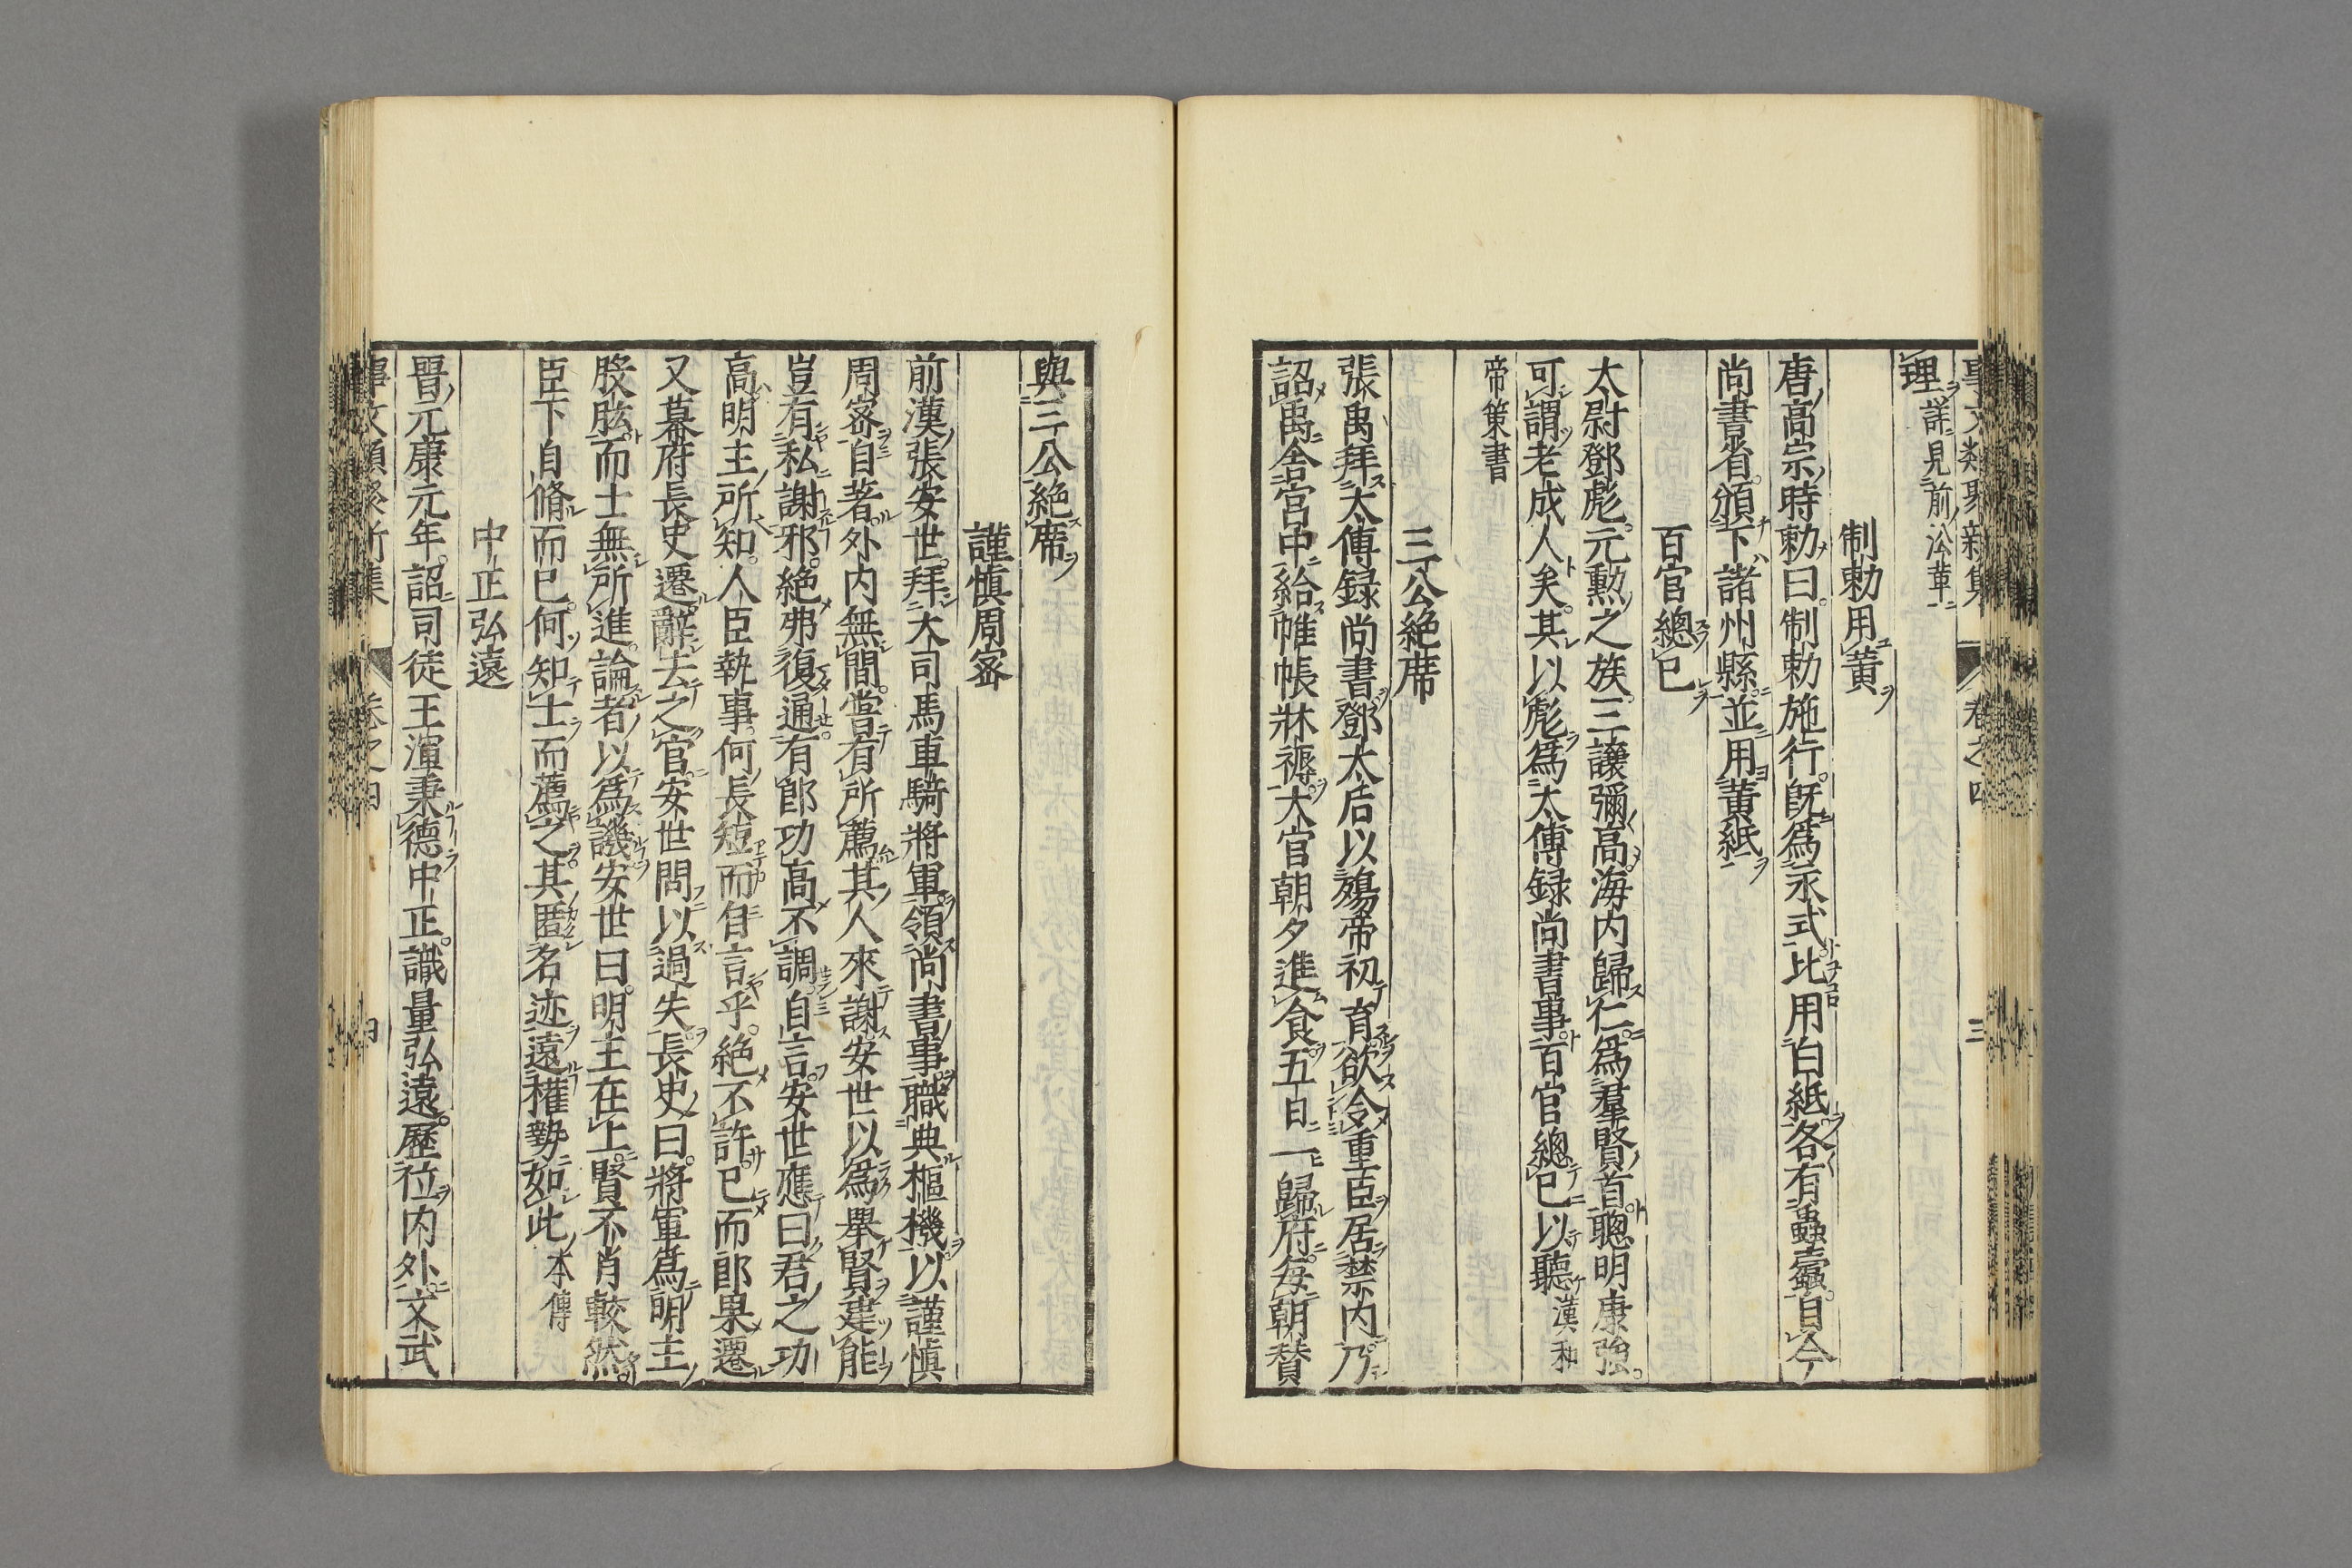 理詳見前沿革
制勅用黃
唐高宗時勅曰制勅施行既爲永式比用白紙各有蟲蠹自今
尚書省頒下諸州縣並用黃紙
百官總已
太尉鄧彪元勲之族三讓彌高海内歸仁爲羣賢首聰明康強
可謂老成人矣其以彪爲太傅録尚書事百官總已以聽漢和
帝策書
三公絶席
張禹拜太傅録尚書鄧太后以殤帝初育欲令重臣居禁内乃
詔禹舎宮中給帷帳牀褥太官朝夕進食五日一歸府每朝賛
與三公絶席
謹愼周宻
前漢張安世拜大司馬車騎將軍領尚書事職典樞機以謹愼
周宻自著外内無間嘗有所薦其人來謝安世以爲舉賢建能
豈有私謝邪絶弗復通有郎功高不調自言安世應曰君之功
高明主所知人臣執事何長短而自言乎絶不許已而郎果遷
又幕府長史遷辭去之官安世問以過失長史曰將軍爲明主
股肱而士無所進論者以爲譏安世曰明主在上賢不肖較然
臣下自脩而已何知士而薦之其匿名迹遠權勢如此本傳
中正弘遠
晉元康元年詔司徒王渾秉德中正識量弘遠歷位内外文武